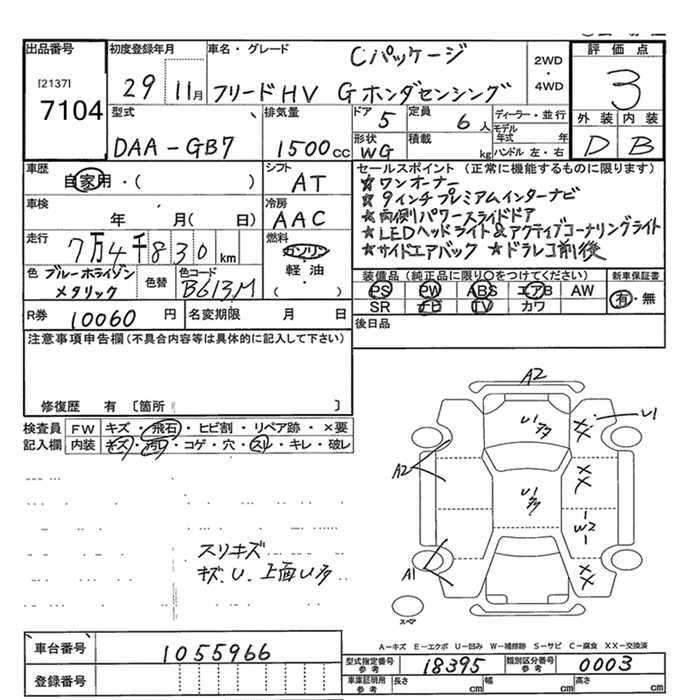 出品番号
[2137]
7104
初度登録年月
29 11月
車名・グレード
Cパッケージ
フリードHV G ホンダセンシング
2WD
・
4WD
評価点
3
外装 内装
D B
型式
DAA-GB7
排気量
1500cc
ドア 5
定員 6人
ディーラー・並行
モデル年式 年
形状 WG
積載 kg
ハンドル 左・右
車歴
自家用・( )
シフト
AT
セールスポイント (正常に機能するものに限ります)
★ワンオーナー
★9インチプレミアムインターナビ
★両側パワースライドドア
★LEDヘッドライト&アクティブコーナリングライト
★サイドエアバック ★ドラレコ前後
車検
年 月( 日)
冷房
AAC
走行
7万4千830km
燃料
ガソリン
軽油
( )
色 ブルーホライゾン
メタリック
色替
色コード
B613M
装備品 (純正品に限り○をつけてください)
PS PW ABS エアB AW
SR ナビ TV カワ
新車保証書
有・無
R券 10060円
名変期限 月 日
後日品
注意事項申告欄(不具合内容等は具体的に記入して下さい)
修復歴 有 [箇所 ]
検査員 FW キズ・飛石・ヒビ割・リペア跡・×要
記入欄 内装 キズ・汚れ・コゲ・穴・スレ・キレ・破レ
A2
U1
U1
A2
××
××
U1
W2
A1
××
スペア
スリキズ
キズ.U.上面U多
A-キズ E-エクボ U-凹み W-補修跡 S-サビ C-腐食 XX-交換済
車台番号 1055966
登録番号
型式指定番号 参考 18395
類別区分番号 参考 0003
車庫証明用 参考 長さ cm 幅 cm 高さ cm